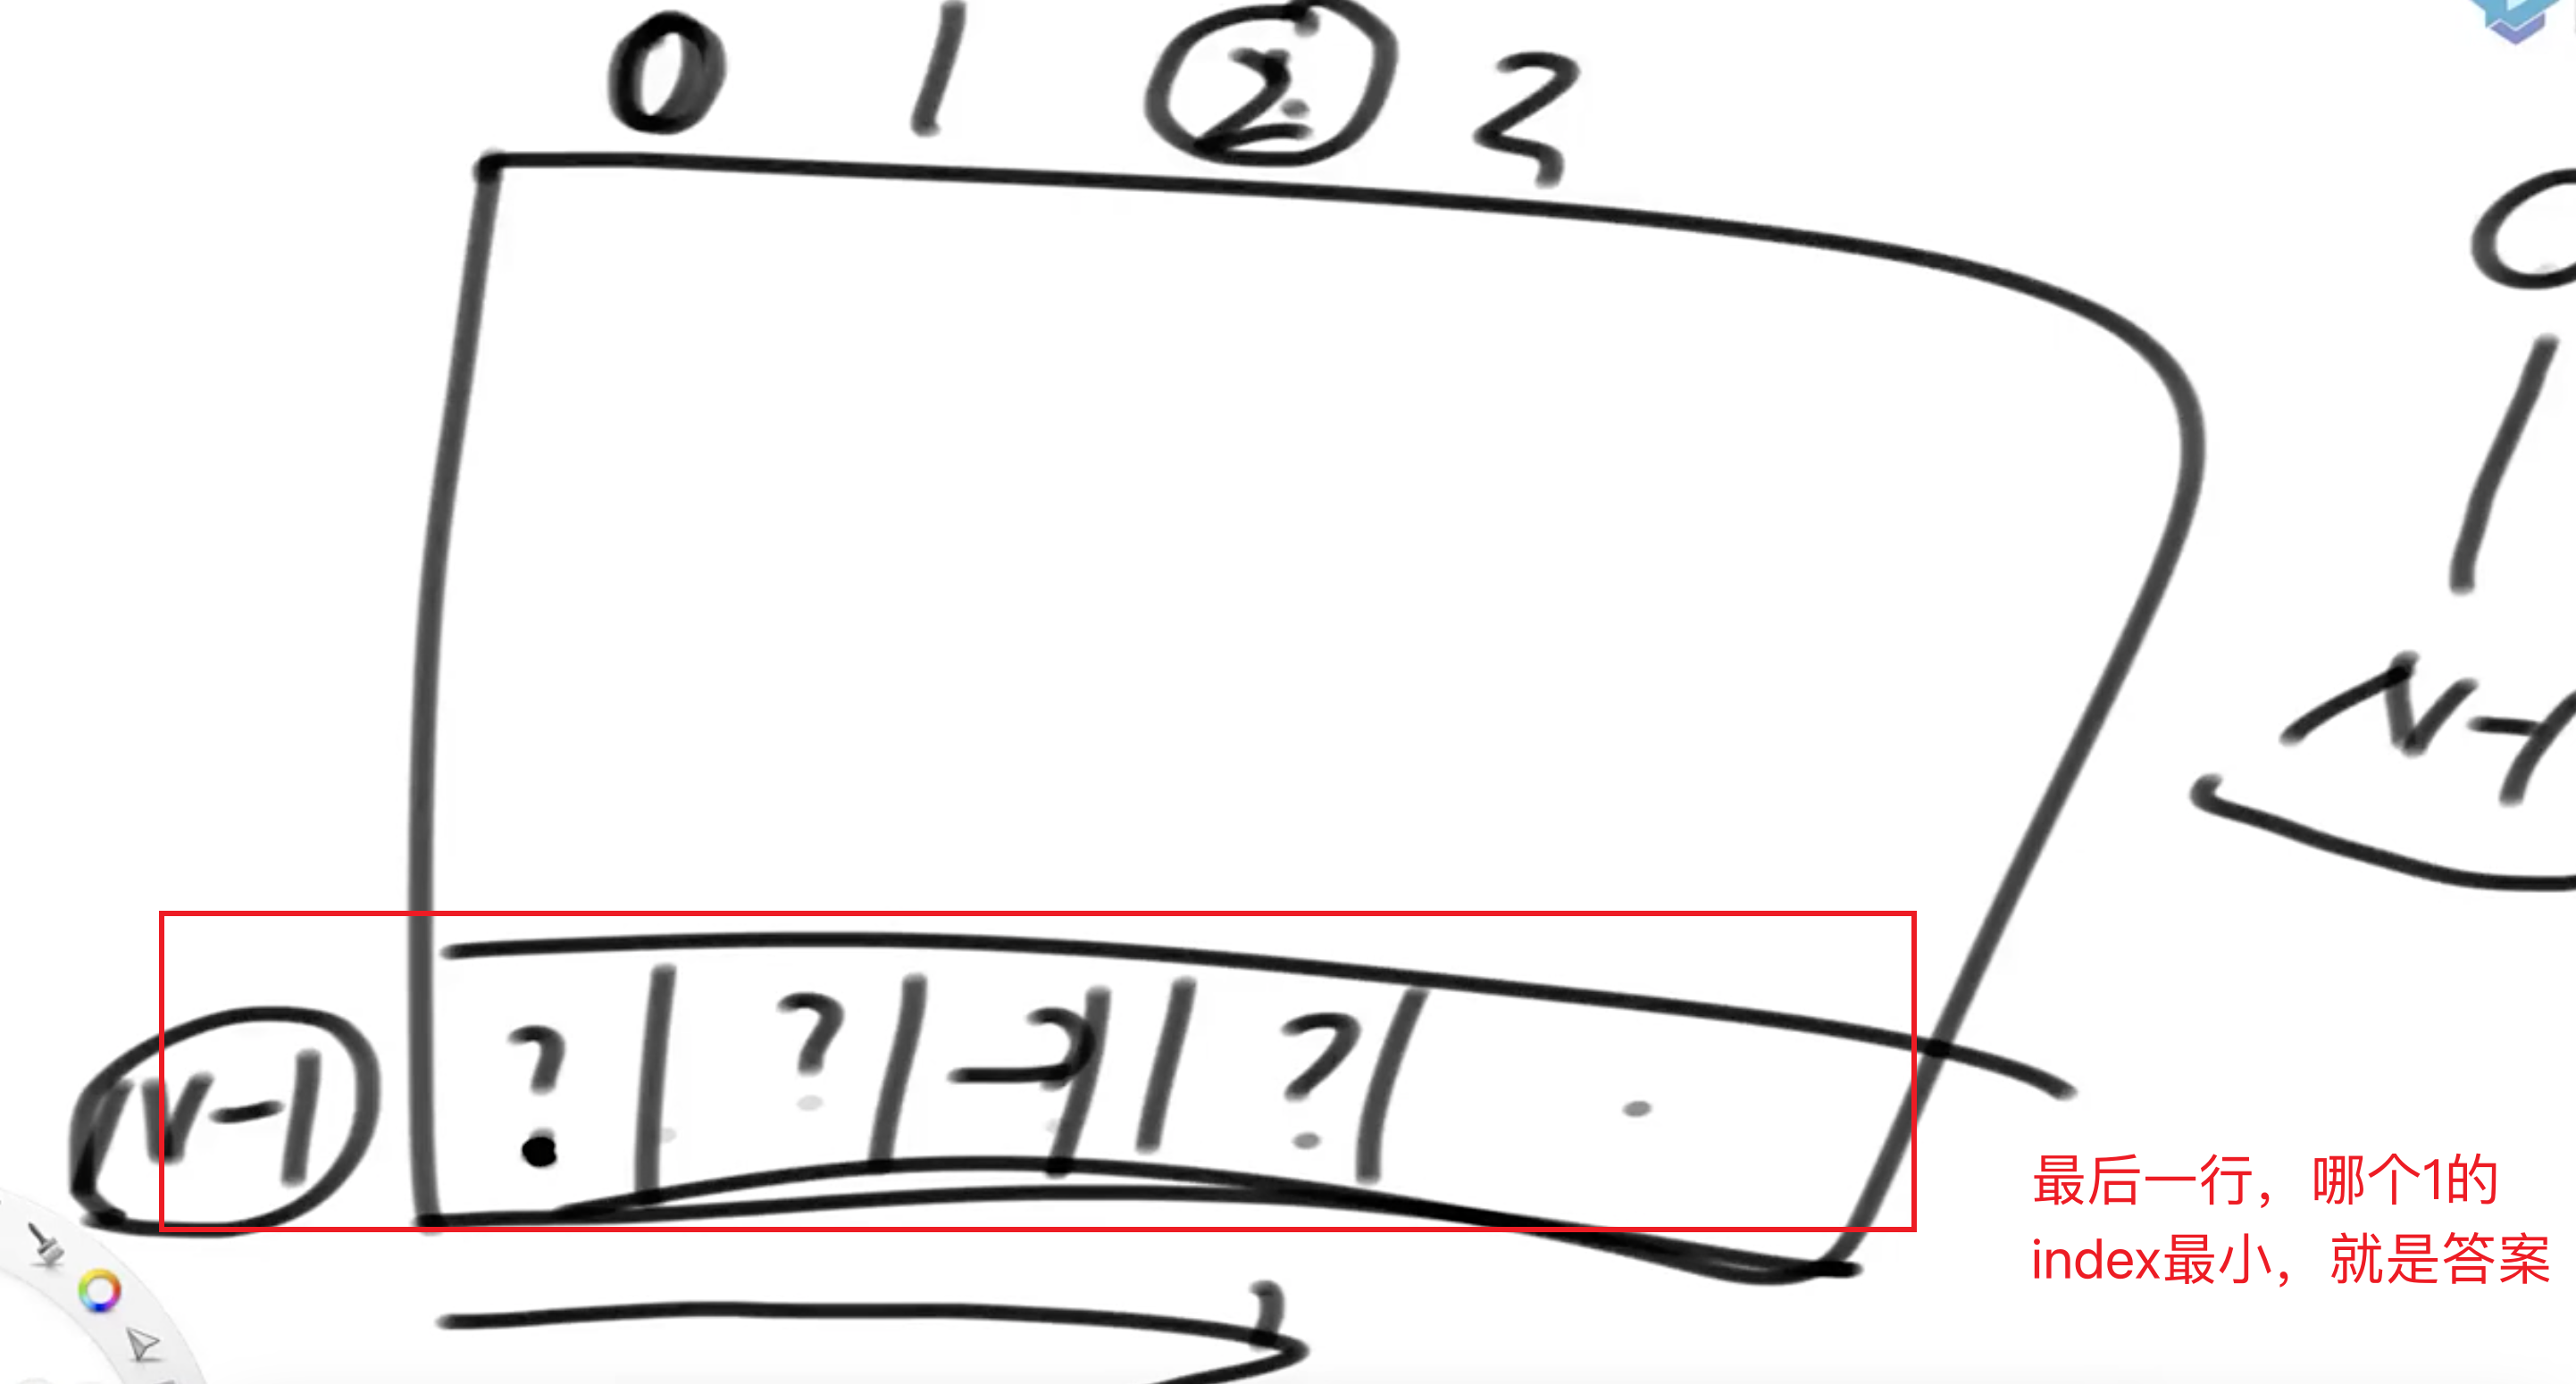 0 1 2 2
0
1
N-1
? ? ? ?
N-1
最后一行，哪个1的
index最小，就是答案